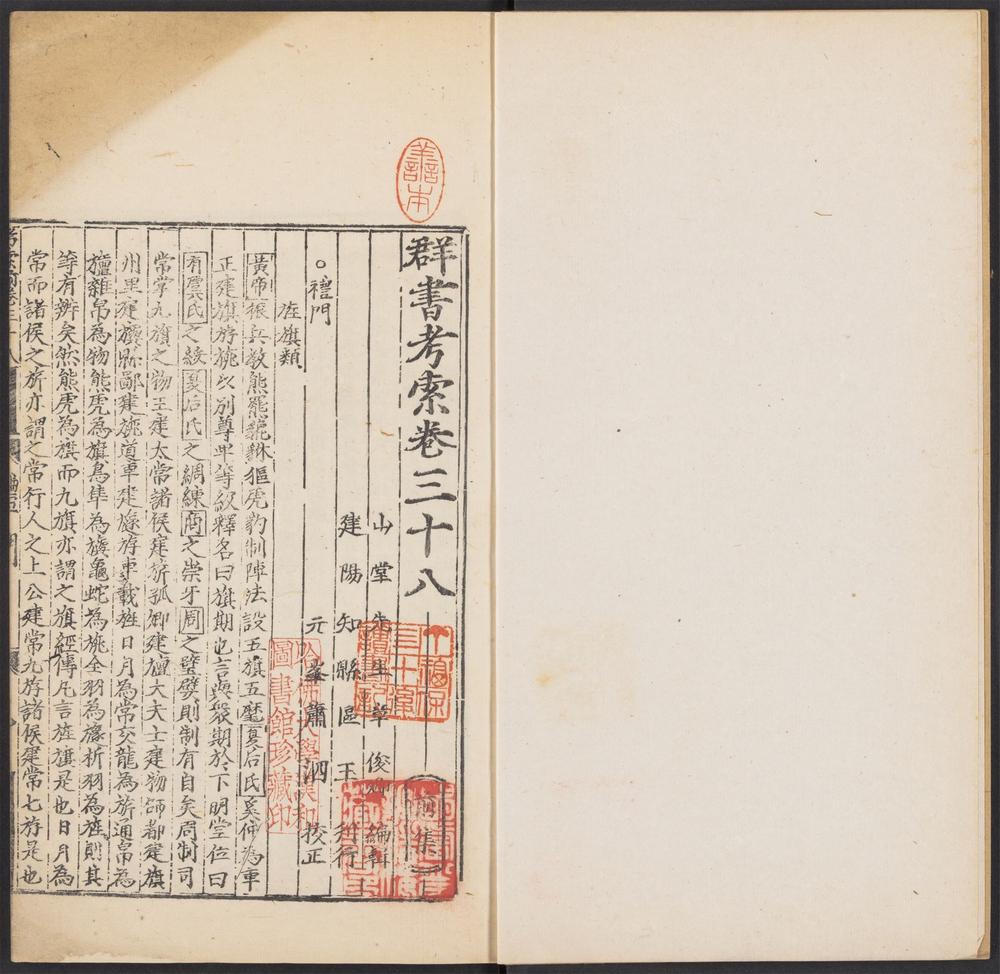 善本
群書考索卷三十八
前集
山堂先生章俊卿編輯
建陽知縣區玉刊行
元峯蕭泗校正
○禮門
旌旗類
黃帝振兵敎熊羆貔貅貙虎豹制陣法設五旗五麾夏后氏奚仲為車
正建旗斿旐以別尊卑等級釋名曰旗期也言與衆期於下明堂位曰
有虞氏之綏夏后氏之綢練商之崇牙周之璧翣則制有自矣周制司
常掌九旗之物王建太常諸侯建旂孤卿建旜大夫士建物師都建旗
州里建旟縣鄙建旐道車建旞斿車載旌日月為常交龍為旂通帛為
旜雜帛為物熊虎為旗鳥隼為旟龜蛇為旐全羽為旞析羽為旌則其
等有辨矣然熊虎為旗而九旗亦謂之旗經傳凡言旌旗是也日月為
常而諸侯之旂亦謂之常行人之上公建常九斿諸侯建常七斿是也
哈佛大學漢和
圖書館珍藏印